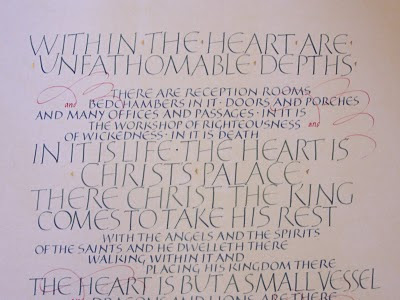 WITHIN · THE · HEART · ARE ·
UNFATHOMABLE · DEPTHS ·
THERE ARE RECEPTION ROOMS
and BEDCHAMBERS IN IT · DOORS AND PORCHES
AND MANY OFFICES AND PASSAGES · IN IT IS
THE WORKSHOP OF RIGHTEOUSNESS and
OF WICKEDNESS · IN IT IS DEATH
IN IT IS LIFE · THE HEART IS
· CHRISTS PALACE ·
THERE CHRIST THE KING
COMES TO TAKE HIS REST
WITH THE ANGELS AND THE SPIRITS
OF THE SAINTS AND HE DWELLETH THERE
WALKING WITHIN IT AND
PLACING HIS KINGDOM THERE
THE HEART IS BUT A SMALL VESSEL
DRAGONS AND LIONS ARE THERE